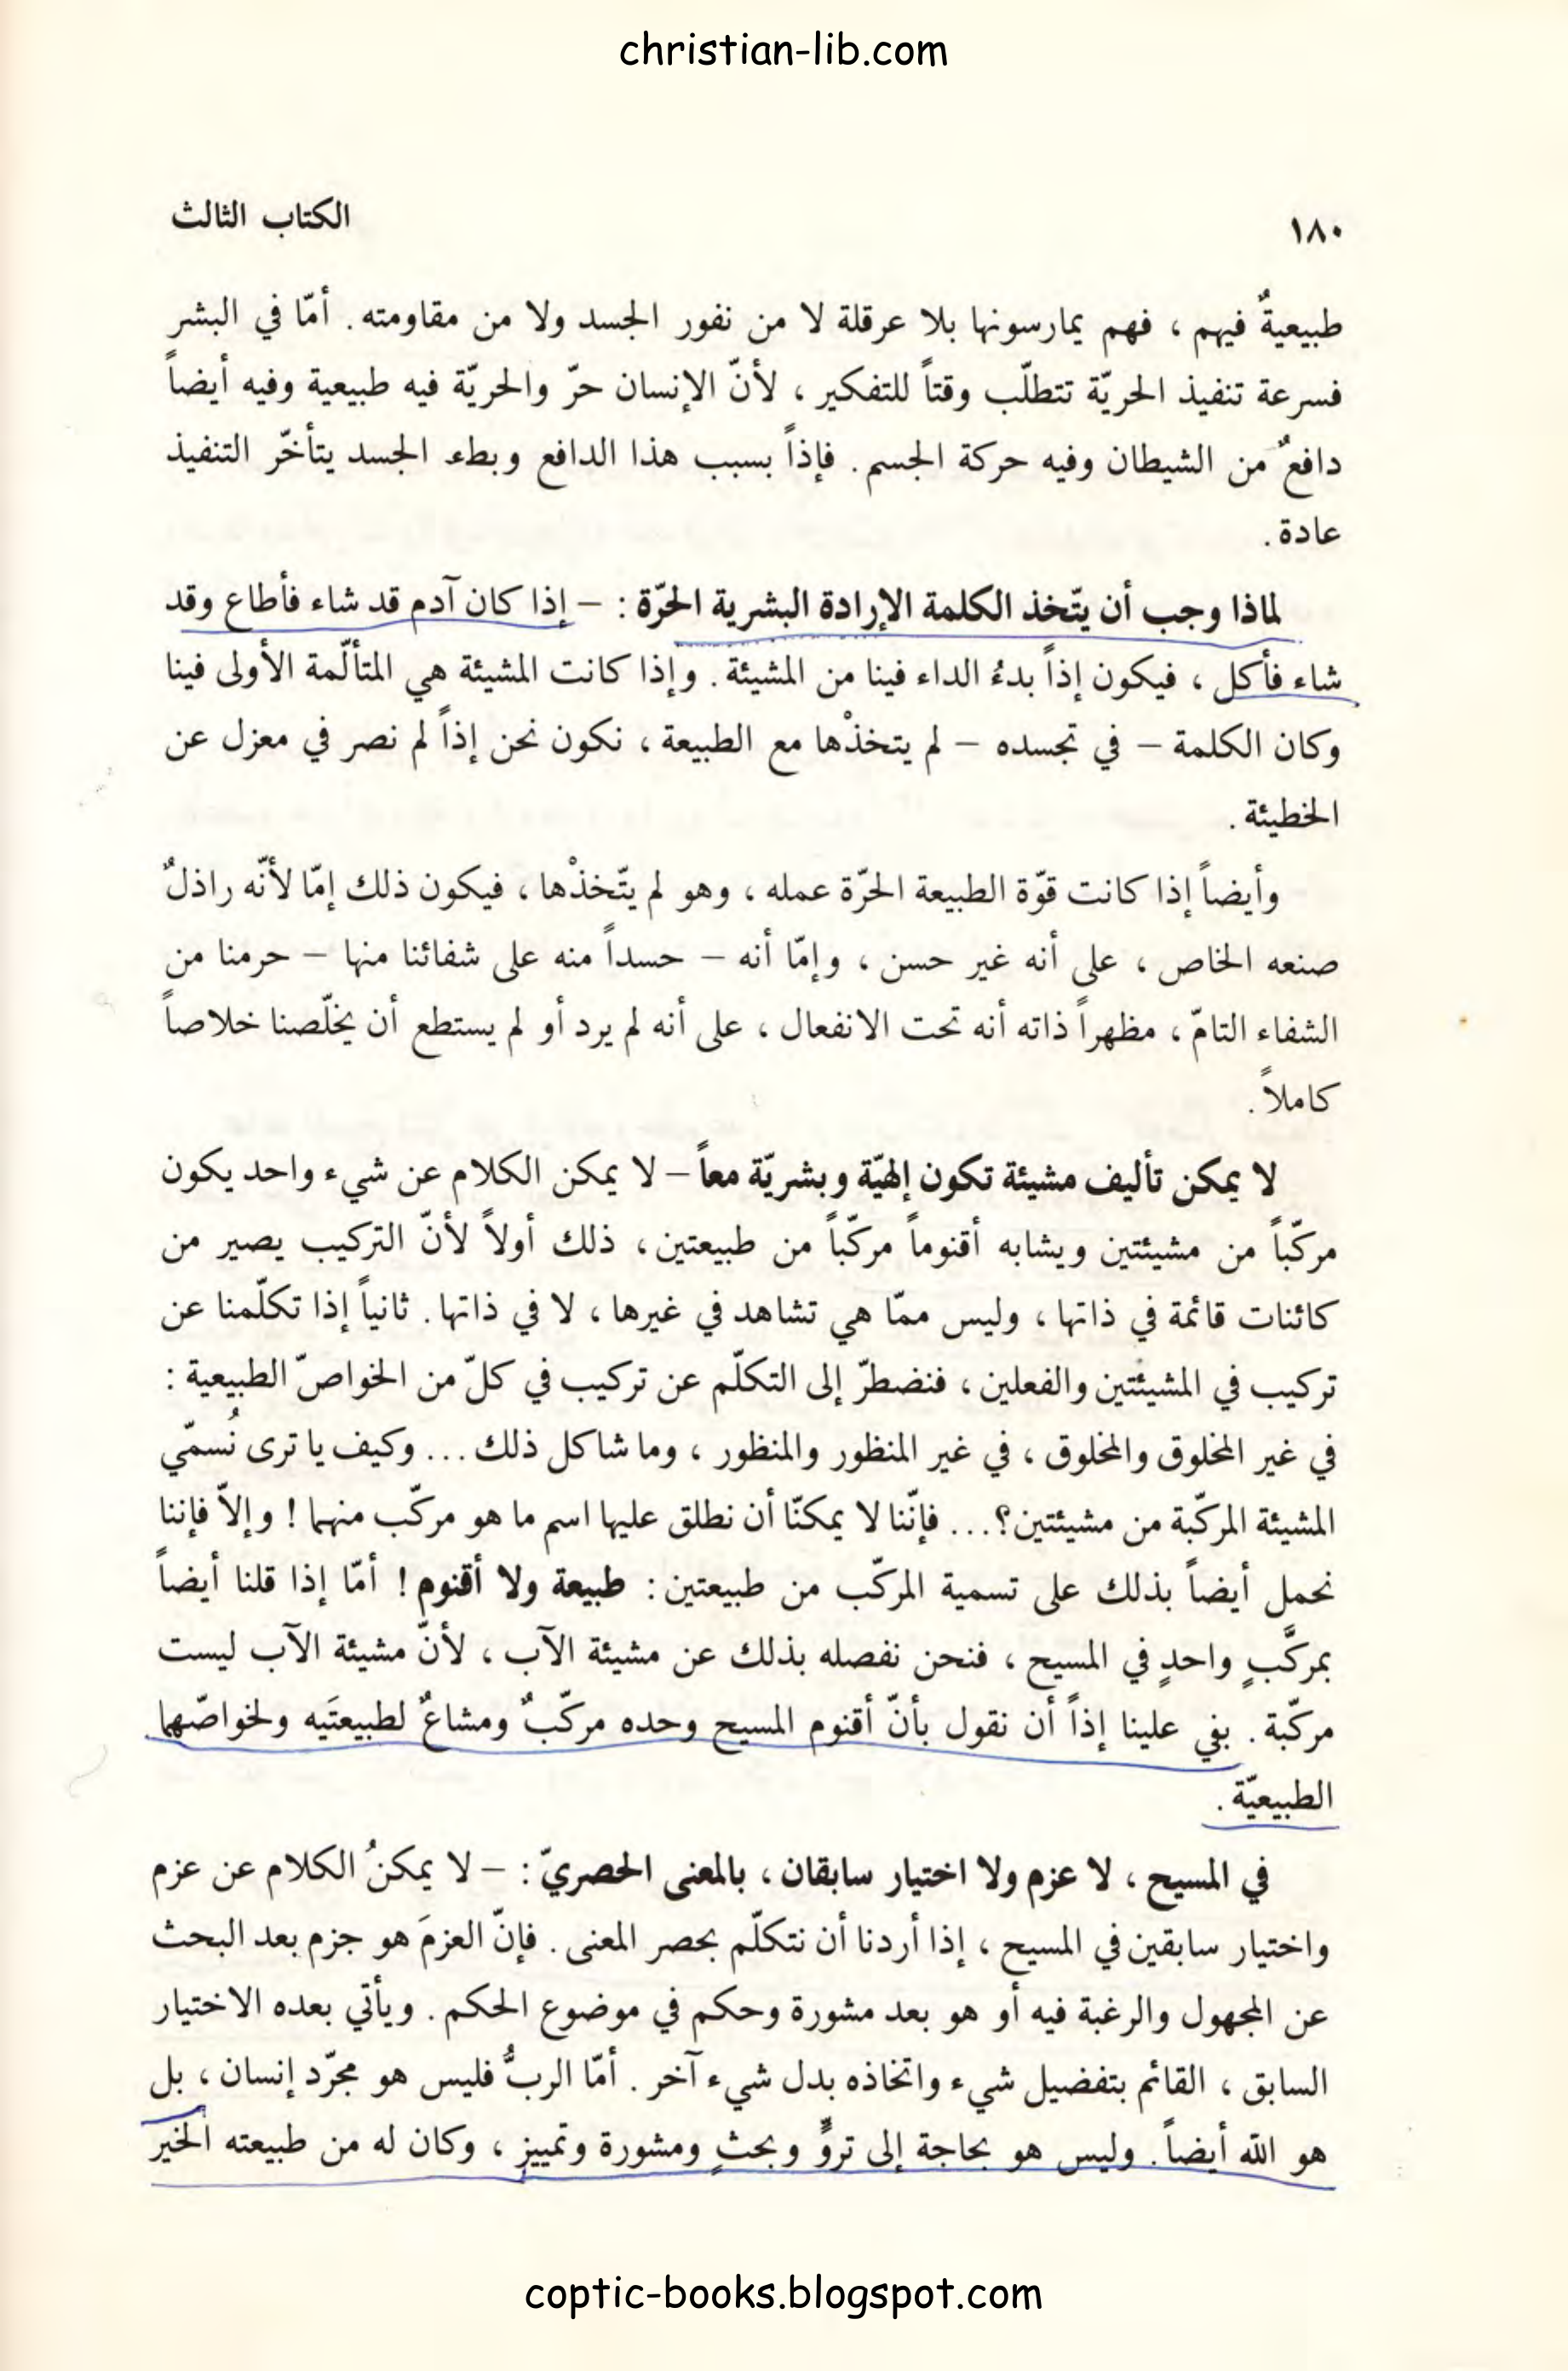 christian-lib.com
١٨٠
الكتاب الثالث
طبيعيةٌ فيهم ، فهم يمارسونها بلا عرقلة لا من نفور الجسد ولا من مقاومته . أمّا في البشر
فسرعة تنفيذ الحريّة تتطلّب وقتاً للتفكير ، لأنّ الإنسان حرّ والحريّة فيه طبيعية وفيه أيضاً
دافعٌ من الشيطان وفيه حركة الجسم . فإذاً بسبب هذا الدافع وبطء الجسد يتأخّر التنفيذ
عادة .
لماذا وجب أن يتّخذ الكلمة الإرادة البشرية الحرّة : – إذا كان آدم قد شاء فأطاع وقد
شاء فأكل ، فيكون إذاً بدءُ الداء فينا من المشيئة . وإذا كانت المشيئة هي المتألّمة الأولى فينا
وكان الكلمة – في تجسده – لم يتخذْها مع الطبيعة ، نكون نحن إذاً لم نصر في معزل عن
الخطيئة .
وأيضاً إذا كانت قوّة الطبيعة الحرّة عمله ، وهو لم يتّخذْها ، فيكون ذلك إمّا لأنّه راذلٌ
صنعه الخاص ، على أنه غير حسن ، وإمّا أنه – حسداً منه على شفائنا منها – حرمنا من
الشفاء التامّ ، مظهراً ذاته أنه تحت الانفعال ، على أنه لم يرد أو لم يستطع أن يخلّصنا خلاصاً
كاملاً .
لا يمكن تأليف مشيئة تكون إلهيّة وبشريّة معاً – لا يمكن الكلام عن شيء واحد يكون
مركّباً من مشيئتين ويشابه أقنوماً مركّباً من طبيعتين ، ذلك أولاً لأنّ التركيب يصير من
كائنات قائمة في ذاتها ، وليس ممّا هي تشاهد في غيرها ، لا في ذاتها . ثانياً إذا تكلّمنا عن
تركيب في المشيئتين والفعلين ، فنضطرّ إلى التكلّم عن تركيب في كلّ من الخواصّ الطبيعية :
في غير المخلوق والمخلوق ، في غير المنظور والمنظور ، وما شاكل ذلك ... وكيف يا ترى نُسمّي
المشيئة المركّبة من مشيئتين؟ ... فإنّنا لا يمكنّا أن نطلق عليها اسم ما هو مركّب منهما ! وإلاّ فإننا
نحمل أيضاً بذلك على تسمية المركّب من طبيعتين : طبيعة ولا أقنوم ! أمّا إذا قلنا أيضاً
بمركَّبٍ واحدٍ في المسيح ، فنحن نفصله بذلك عن مشيئة الآب ، لأنّ مشيئة الآب ليست
مركّبة . بقي علينا إذاً أن نقول بأنّ أقنوم المسيح وحده مركّبٌ ومشاعٌ لطبيعتَيه ولخواصّهما
الطبيعيّة .
في المسيح ، لا عزم ولا اختيار سابقان ، بالمعنى الحصريّ : – لا يمكنُ الكلام عن عزم
واختيار سابقين في المسيح ، إذا أردنا أن نتكلّم بحصر المعنى . فإنّ العزمَ هو جزم بعد البحث
عن المجهول والرغبة فيه أو هو بعد مشورة وحكم في موضوع الحكم . ويأتي بعده الاختيار
السابق ، القائم بتفضيل شيء واتخاذه بدل شيء آخر . أمّا الربُّ فليس هو مجرّد إنسان ، بل
هو الله أيضاً . وليس هو بحاجة إلى تروٍّ وبحثٍ ومشورة وتمييز ، وكان له من طبيعته الخير
coptic-books.blogspot.com